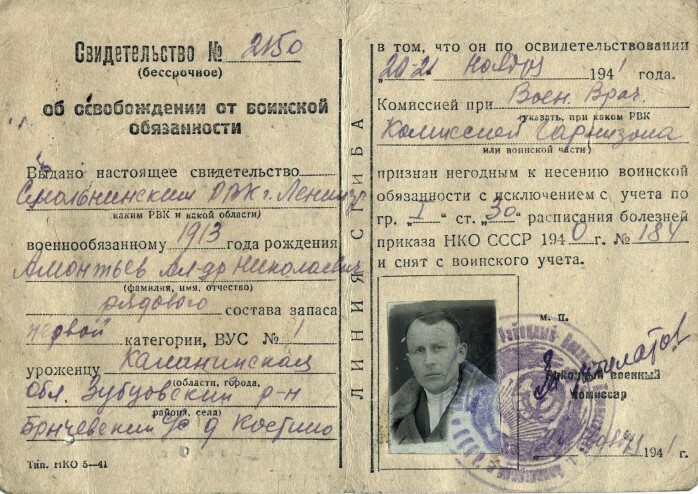 Свидетельство № 2150
(бессрочное)
об освобождении от воинской
обязанности
Выдано настоящее свидетельство
Смольнинским РВК г. Ленингр
каким РВК и нской области)
военнообязанному 1913 года рождения
Амонтьев Ал-др Николаевич
(фамилия, имя, отчество)
рядового состава запаса
первой категории, ВУС № 1
уроженцу Калининская
(области, города,
обл. Зубцовский р-н
района, села)
д Костино
Тип. НКО 5—41
ЛИНИЯ СГИБА
в том, что он по освидетельствовании
„20-21 ноября 1941 года.
Комиссией при Воен. Врач.
(указать, при каком РВК
Комиссией Гарнизона
или воинской части)
признан негодным к несению воинской
обязанности с исключением с учета по
гр. „I“ ст. „30“ расписания болезней
приказа НКО СССР 1940 г. № 184
и снят с воинского учета.
м. п.
Районный военный
комиссар
1941 г.